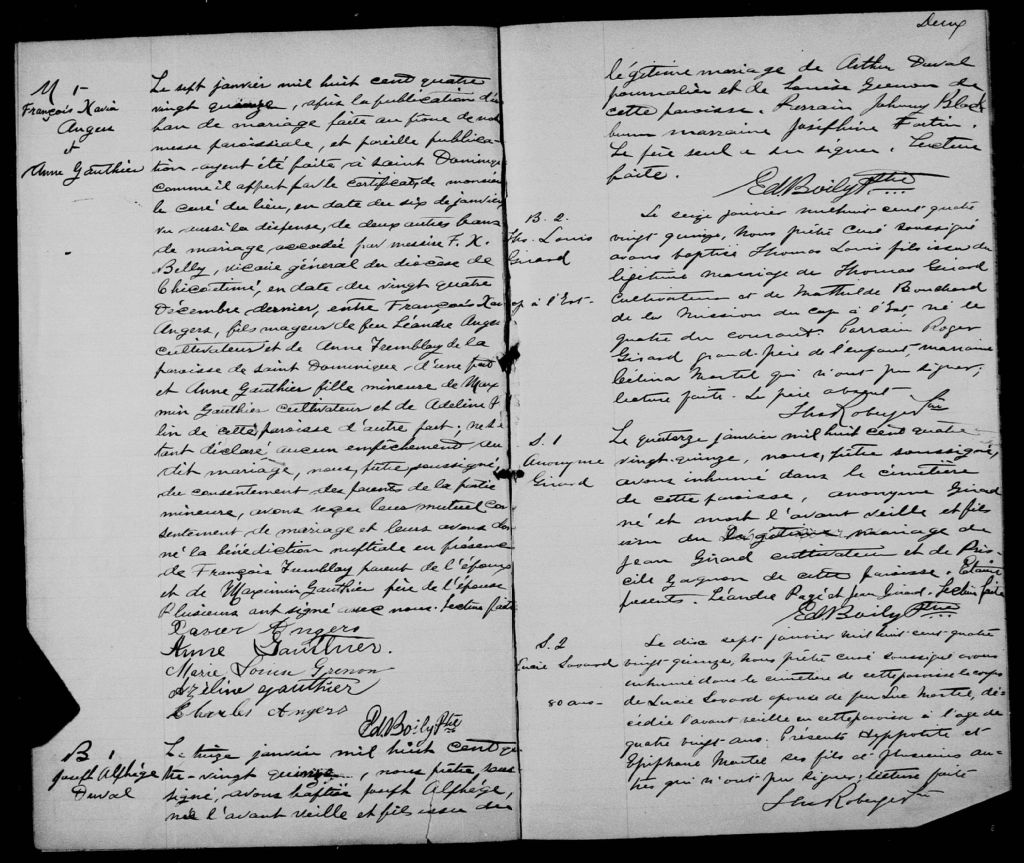 M 1
François Xavier
Angers
et
Anne Gauthier
Le sept janvier mil huit cent quatre
vingt quinze, après la publication d'un
ban de mariage faite au prône de notre
messe paroissiale, et pareille publica-
tion ayant été faite à saint Dominique
comme il appert par le certificat de monsieur
le curé du lieu, en date du six de janvier
vu aussi la dispense, de deux autres bans
de mariage accordée par messire F. X.
Belly, vicaire général du diocèse de
Chicoutimi, en date du vingt quatre
Décembre dernier, entre François Xavier
Angers, fils majeur de feu Léandre Angers
cultivateur et de Anne Tremblay de la
paroisse de saint Dominique d'une part
et Anne Gauthier fille mineure de Maxi
min Gauthier cultivateur et de Adeline
de cette paroisse d'autre part; ne s'é
tant déclaré aucun empêchement au
dit mariage, nous, prêtre soussigné,
du consentement des parents de la partie
mineure, avons reçu leur mutuel con
sentement de mariage et leur avons don
né la bénédiction nuptiale en présence
de François Tremblay parent de l'époux
et de Maximin Gauthier père de l'épouse
Plusieurs ont signé avec nous. Lecture faite
Xavier Angers
Anne Gauthier.
Marie Louise Grenon
Azéline Gauthier
Charles Angers
Ed. Boily Ptre
B 1
Joseph Alphège
Duval
Le treize janvier mil huit cent qua
tre-vingt quinze, nous prêtre sous
signé, avons baptisé Joseph Alphège,
né l'avant veille et fils issu du
Deux
légitime mariage de Arthur Duval
journalier et de Louise Grenon de
cette paroisse. Parrain Johnny Black
burn marraine Joséphine Fortin.
Le père seul a su signer. Lecture
faite.
Ed. Boily Ptre
B. 2.
Ths. Louis
Girard
Cap à l'Est
Le seize janvier mil huit cent quatre
vingt quinze, Nous prêtre curé soussigné
avons baptisé Thomas Louis fils issu du
légitime mariage de Thomas Girard
Cultivateur et de Mathilde Bouchard
de la Mission du cap à l'Est, né le
quatre du courant. Parrain Roger
Girard grand-père de l'enfant, marraine
Célina Martel qui n'ont pu signer,
lecture faite. Le père absent
Ths Roberge Ptre
S. 1
Anonyme
Girard
Le quatorze janvier mil huit cent quatre
vingt-quinze, nous, prêtre soussigné,
avons inhumé dans le cimetière
de cette paroisse, anonyme Girard
né et mort l'avant veille et fils
issu du légitime mariage de
Jean Girard cultivateur et de Pris
cile Gagnon de cette paroisse. Etaient
présents. Léandre Pagé et Jean Girard. Lecture faite
Ed. Boily Ptre
S. 2
Lucie Savard
80 ans
Le dix sept janvier mil huit cent quatre
vingt-quinze, Nous prêtre curé soussigné avons
inhumé dans le cimetière de cette paroisse le corps
de Lucie Savard épouse de feu Luc Martel, dé
cédée l'avant veille en cette paroisse à l'âge de
quatre vingt-ans. Présents Hippolite et
Epiphane Martel ses fils et plusieurs au-
tres qui n'ont pu signer; lecture faite
Ths Roberge Ptre